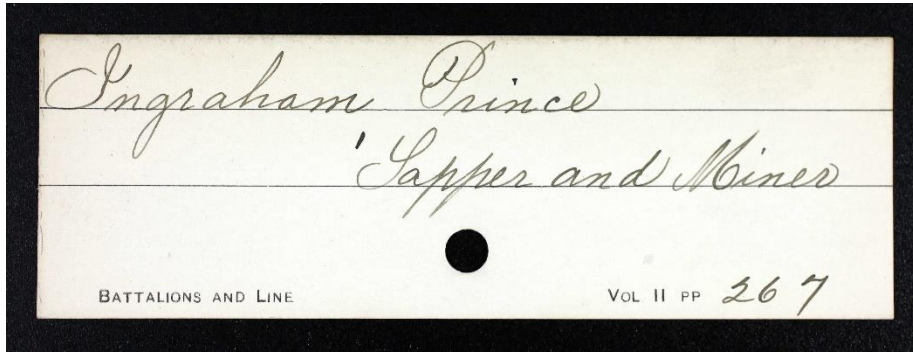 Ingraham Prince
'Sapper and Miner
BATTALIONS AND LINE VOL II PP 267